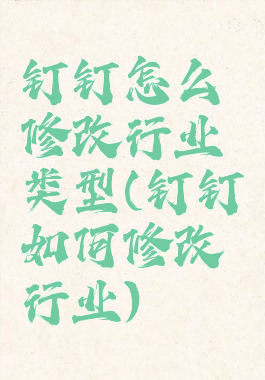 钉钉怎么
修改行业
类型(钉钉
如何修改
行业)